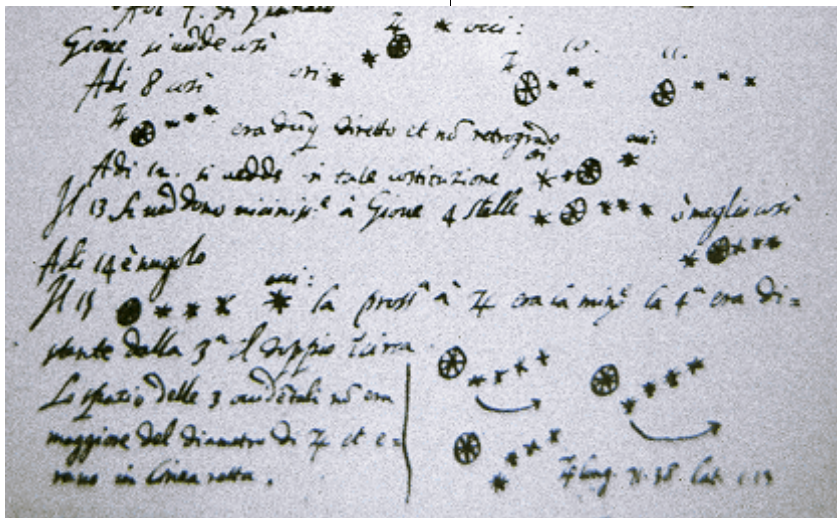 Adi 7. di Gennaio
Gione si vede così occi:
Adi 8 così ori: 10. 11.
era dūq diretto et nō retrogrado
Adi 12. si vedde in tale costituzione ori occi:
Il 13 si veddono miniss.e à Gione 4 stelle ò meglio così
Adi 14 è nugolo
Il 15 occi: la pross.a à ♃ era la min.e la 4.a era di=
stante dalla 3.a il doppio circa
Lo spatio delle 3 occidentali nō era
maggiore del diametro di ♃ et e=
rano in linea retta.
♃ long. 71. 38 lat. 1. 13